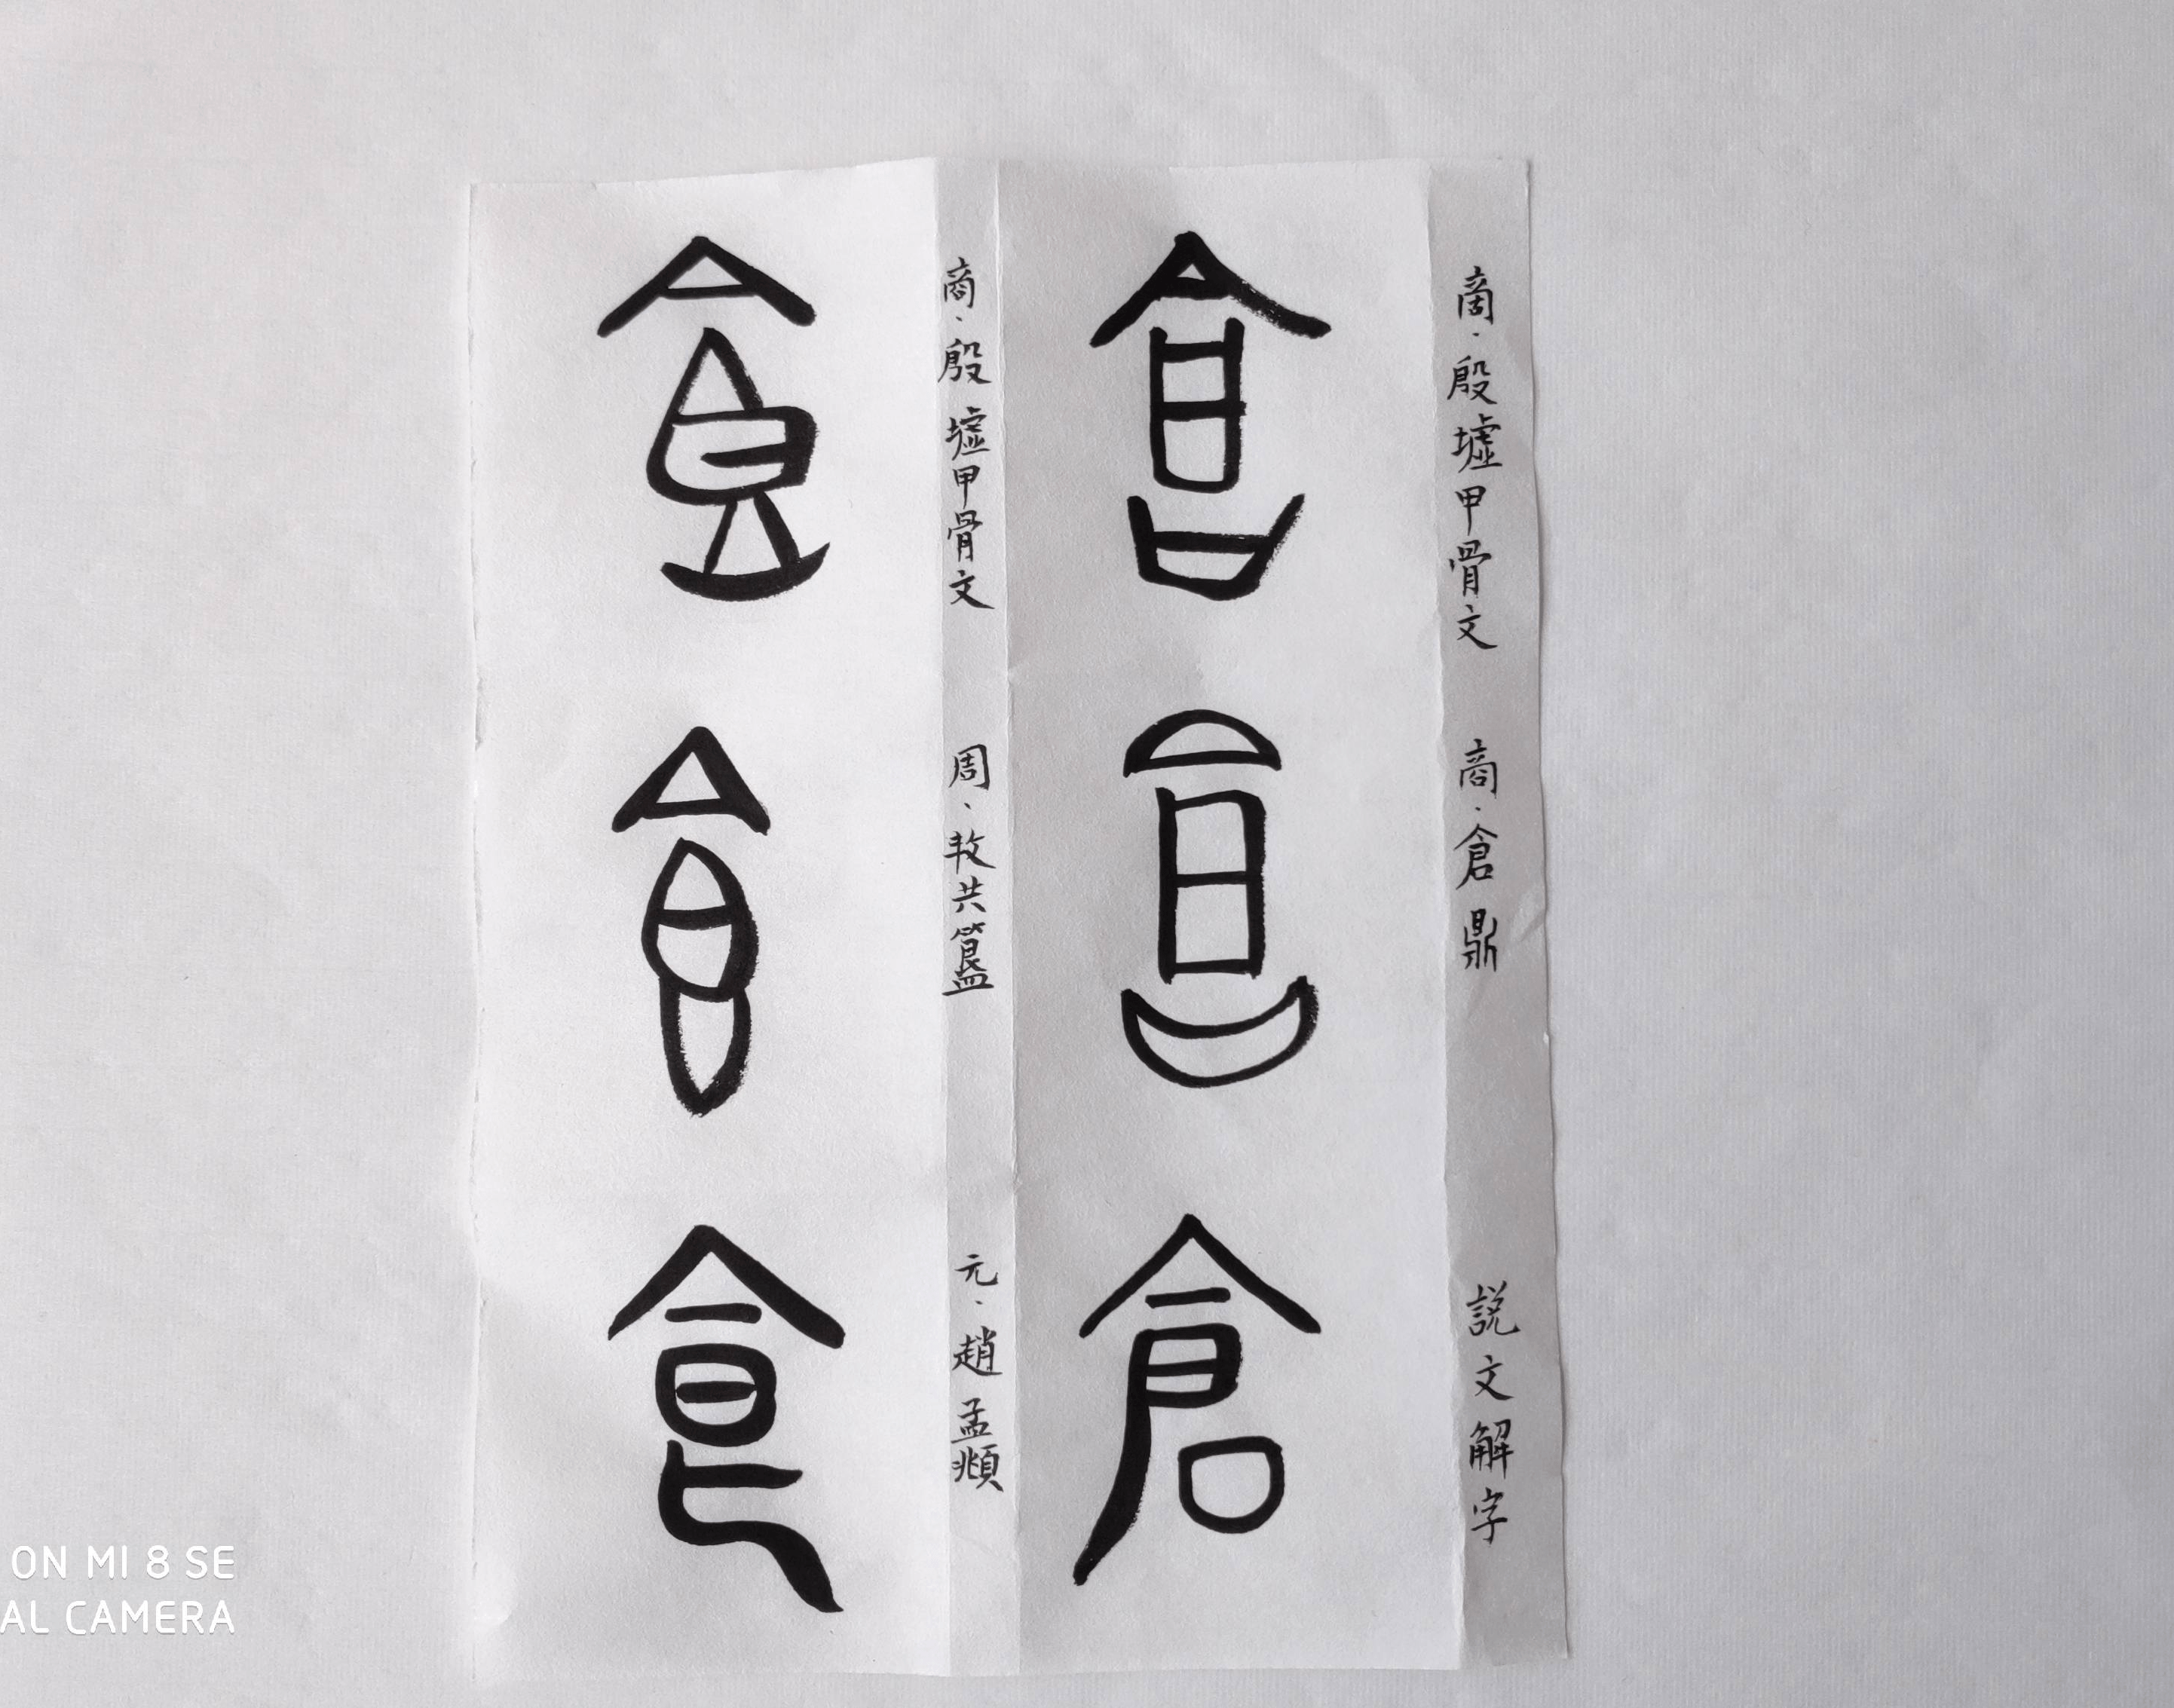 倉
倉
倉
商·殷墟甲骨文
商·倉鼎
説文解字
食
食
食
商·殷墟甲骨文
周·共簋
元·趙孟頫
ON MI 8 SE
AL CAMERA